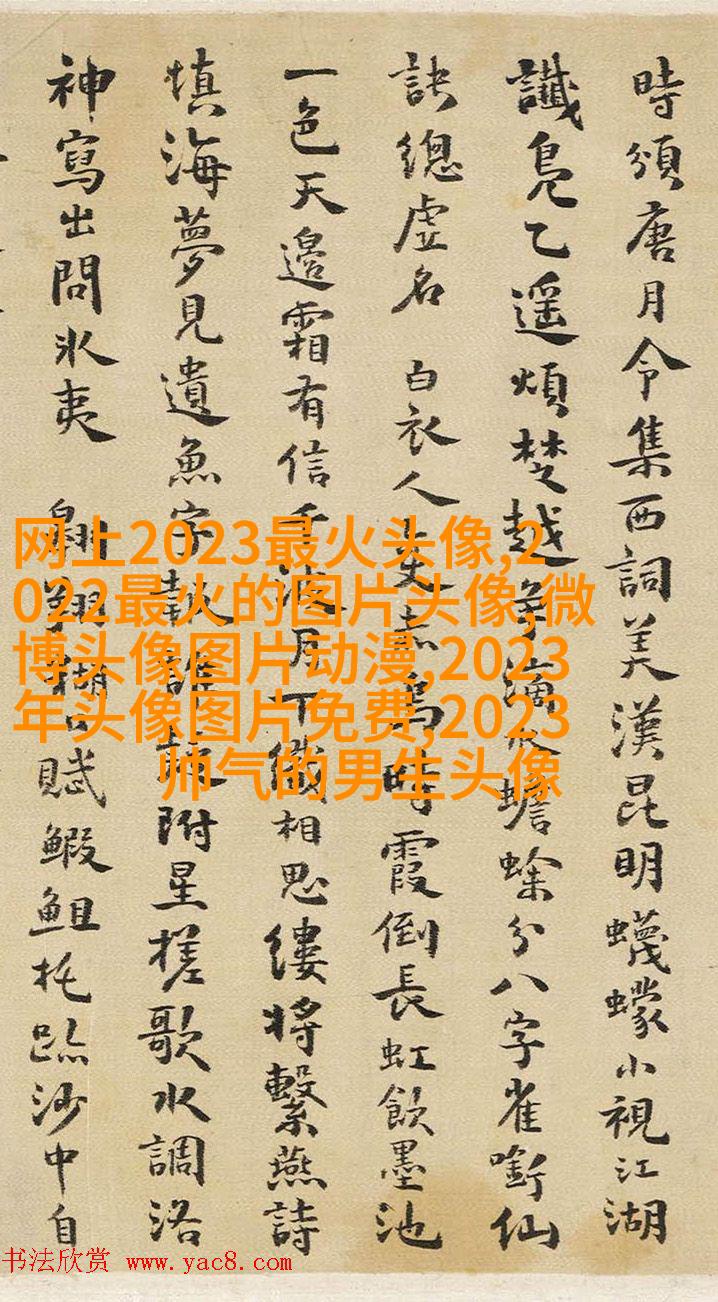 時頒唐月令集西詞美漢昆明蠛蠓小視江湖
讖鳧乙遥煩楚越爭滴水蟾蜍分八字雀銜仙
訣總虚名 白衣人志烏時霞倒長虹飲墨池
一色天邉霜有信千波月下織相思縷將繫燕詩
填海夢見遺魚字報誰附星槎歌水調洛
神寫出問氷夷 翩翩賦鰕鉏托跡沙中自
网上2023最火头像,2
022最火的图片头像,微
博头像图片动漫,2023
年头像图片免费,2023
帅气的男生头像
书法欣赏 www.yac8.com